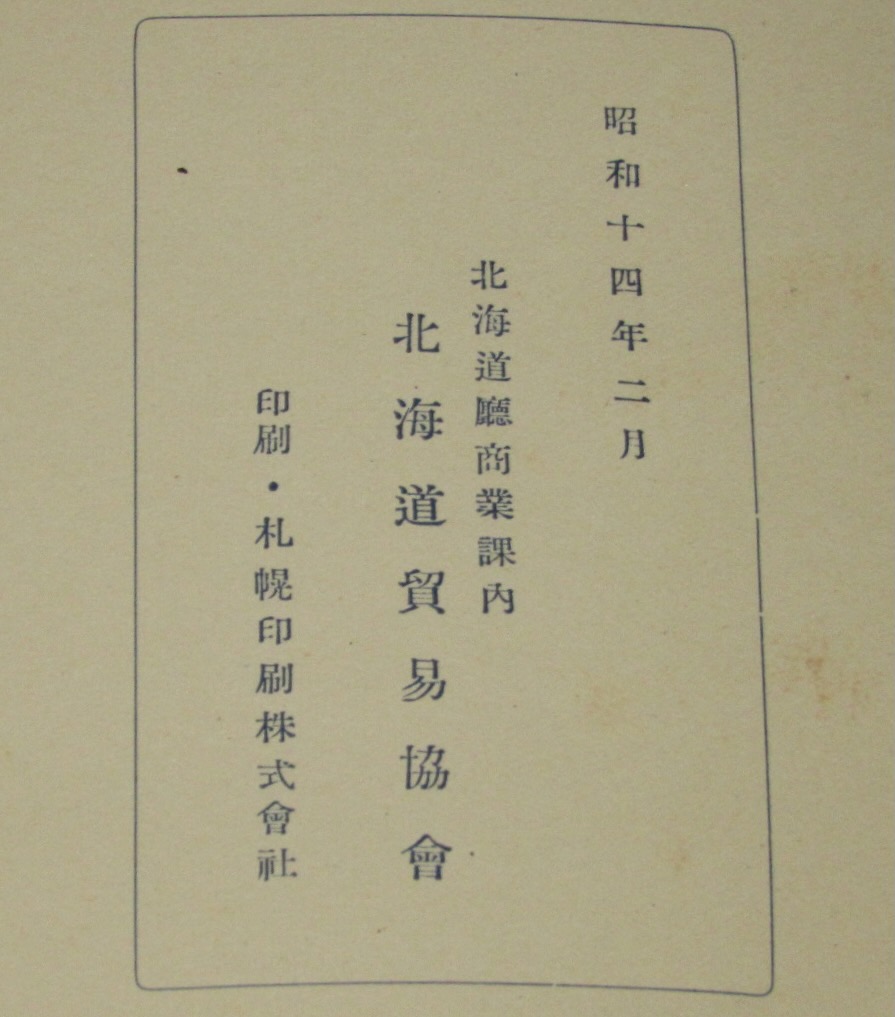 昭和十四年二月
北海道廳商業課內
北海道貿易協會
印刷・札幌印刷株式會社